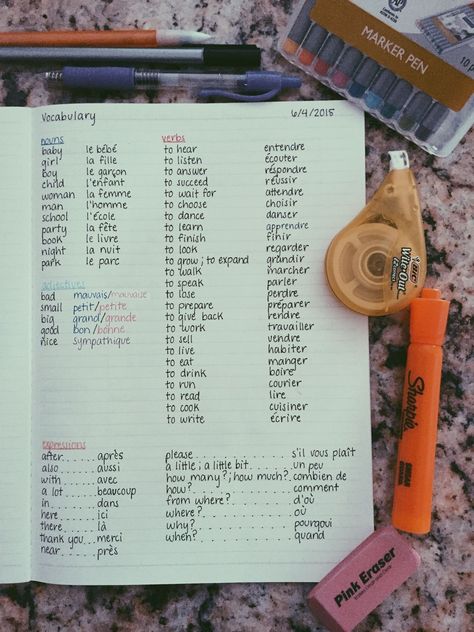 Vocabulary 6/4/2015
nouns
baby le bébé
girl la fille
boy le garçon
child l'enfant
woman la femme
man l'homme
school l'école
party la fête
book le livre
night la nuit
park le parc
adjectives
bad mauvais/mauvaise
small petit/petite
big grand/grande
good bon/bonne
nice sympathique
verbs
to hear entendre
to listen écouter
to answer répondre
to succeed réussir
to wait for attendre
to choose choisir
to dance danser
to learn apprendre
to finish finir
to look regarder
to grow; to expand grandir
to walk marcher
to speak parler
to lose perdre
to prepare préparer
to give back rendre
to work travailler
to sell vendre
to live habiter
to eat manger
to drink boire
to run courier
to read lire
to cook cuisiner
to write écrire
expressions
after......après
also.......aussi
with.......avec
a lot......beaucoup
in.........dans
here.......ici
there......là
thank you..merci
near.......près
please.............s'il vous plaît
a little; a little bit.......un peu
how many?; how much?.combien de
how?...............comment
from where?........d'où
where?.............où
why?...............pourqoui
when?..............quand
MARKER PEN
BIC
Wite-Out
Sharpie
Pink Eraser